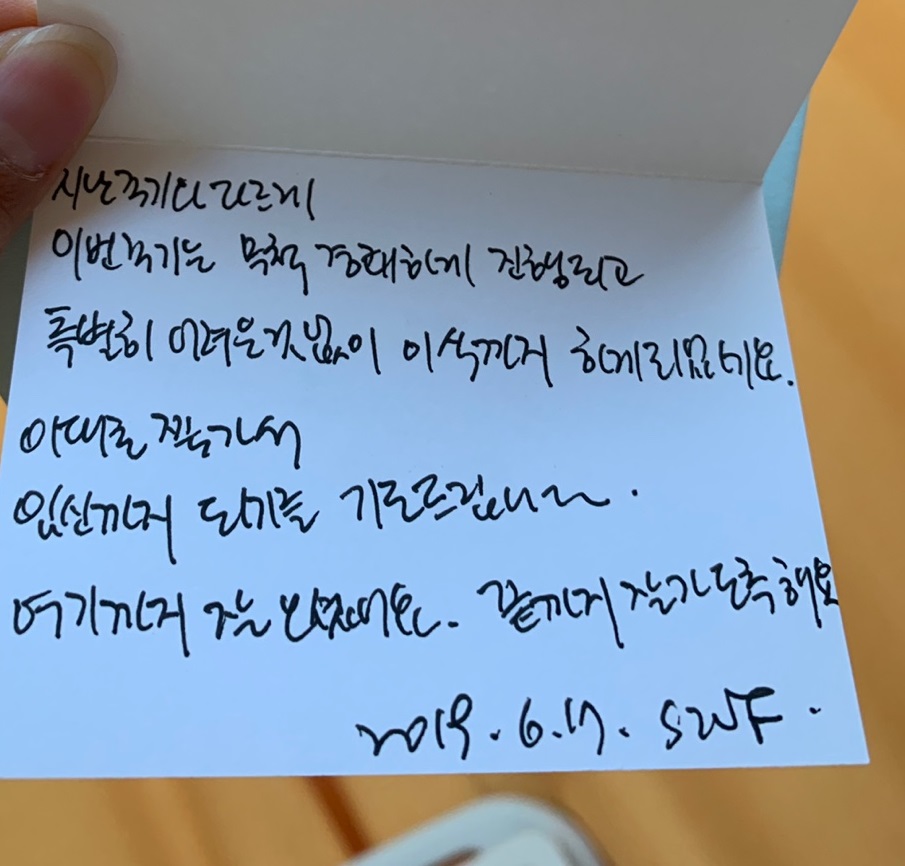 지난주기와 다르게
이번주기는 무척 경쾌하게 진행되고
특별히 어려운것 없이 이식까지 하게되었네요.
이대로 쭉가서
임신까지 되기를 기도드립니다.
여기까지 잘 왔었네요. 끝까지 잘가도록 해요
2019. 6. 17. SWF.